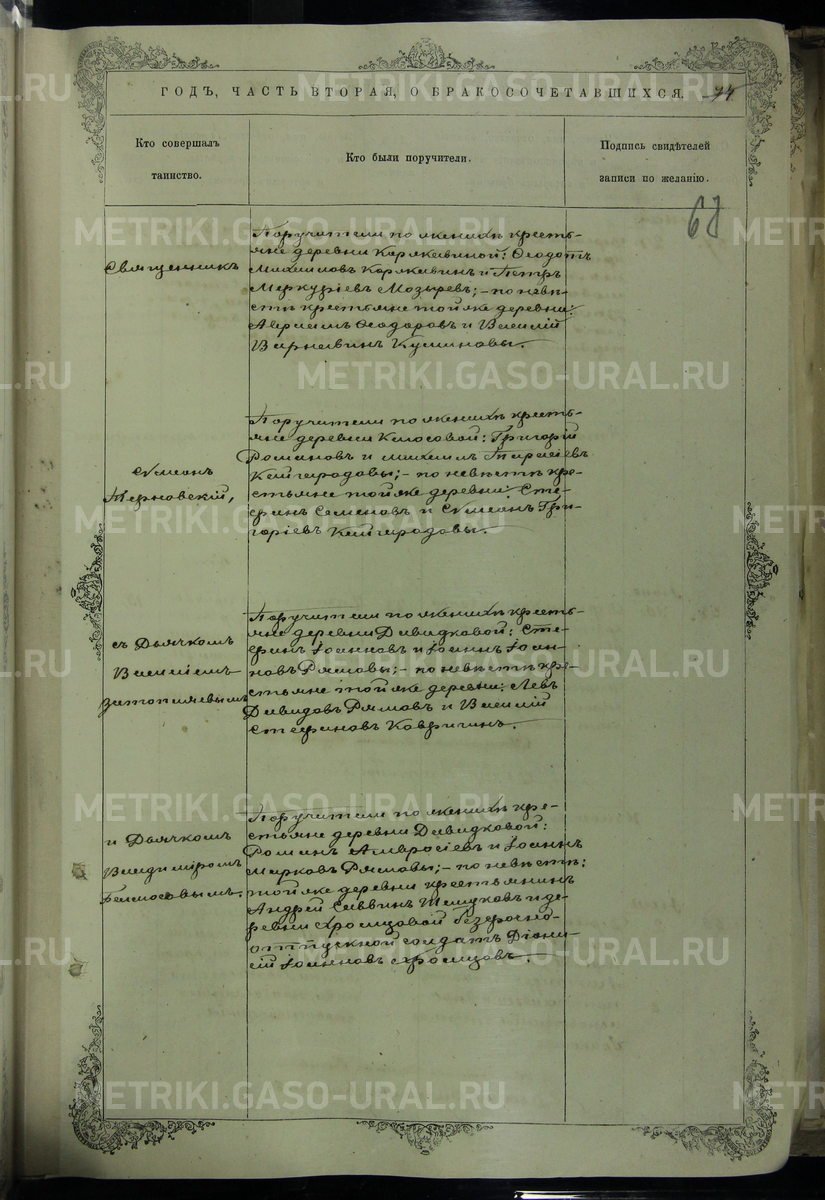 ГОДЪ, ЧАСТЬ ВТОРАЯ, О БРАКОСОЧЕТАВШИХСЯ.
74
Кто совершалъ
таинство.
Кто были поручители.
Подпись свидѣтелей
записи по желанію.
68
Священникъ
Поручители по женихѣ кресть-
яне деревни Корякиной: Ѳеодотъ
Михаиловъ Корякинъ и Петръ
Меркуріевъ Мозыревъ; - по невѣ-
стѣ крестьяне той же деревни:
Авраамъ Ѳеодоровъ и Василій
Варнавинъ
Сѵмеонъ
Терновскій,
Поручители по женихѣ кресть-
яне деревни Колосовой: Григорій
Романовъ и Михаилъ Тарасіевъ
Кайгородовы; - по невѣстѣ кре-
стьяне той же деревни: Сте-
фанъ Семеновъ и Сѵмеонъ Гри-
горіевъ Кайгородовы.
съ Дьячкомъ
Василіемъ
Затопляевымъ
Поручители по женихѣ кресть-
яне деревни Давидковой: Сте-
фанъ Іоанновъ и Іоаннъ Іоан-
новъ Рямовы; - по невѣстѣ кре-
стьяне той же деревни: Левъ
Давидовъ Рямовъ и Василій
Стефановъ Ковригинъ.
и Дьячкомъ
Владиміромъ
Поручители по женихѣ кре-
стьяне деревни Давидковой:
Романъ Амвросіевъ и Іоаннъ
Марковъ Рямовы; - по невѣстѣ:
той же деревни крестьянинъ
Андрей Саввинъ и де-
ревни Хромцовой безсрочно-
отпускной солдатъ Діони-
сій Іоанновъ Хромцовъ.
METRIKI.GASO-URAL.RU